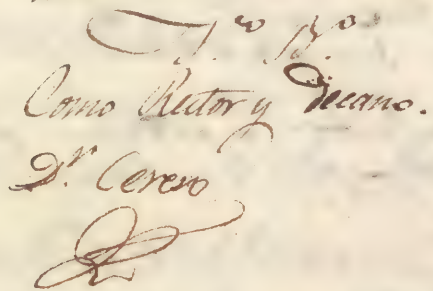 Como Rector y Decano.
D.r Cerero